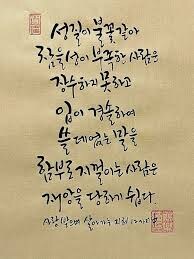 성질이 불꽃 같아
참을성이 부족한 사람은
장수하지 못하고
입이 경솔하여
쓸데없는 말을
함부로 지껄이는 사람은
재앙을 당하기 쉽다.
살아가는 지혜